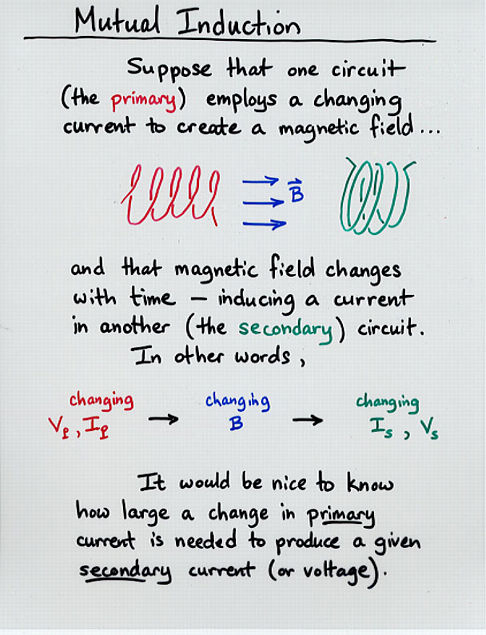 Mutual Induction
Suppose that one circuit
(the primary) employs a changing
current to create a magnetic field...
B
and that magnetic field changes
with time – inducing a current
in another (the secondary) circuit.
In other words,
changing changing changing
Vp, Ip → B → Is, Vs
It would be nice to know
how large a change in primary
current is needed to produce a given
secondary current (or voltage).